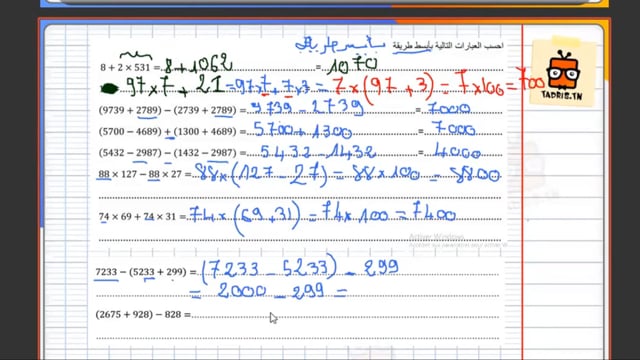 احسب العبارات التالية بأبسط طريقة
8 + 2 × 531 = 8 + 1062 = 1070
97 × 7 + 21 = 97 × 7 + 7 × 3 = 7 × (97 + 3) = 7 × 100 = 700
(9739 + 2789) − (2739 + 2789) = 9739 − 2739 = 7000
(5700 − 4689) + (1300 + 4689) = 5700 + 1300 = 7000
(5432 − 2987) − (1432 − 2987) = 5432 − 1432 = 4000
88 × 127 − 88 × 27 = 88 × (127 − 27) = 88 × 100 = 8800
74 × 69 + 74 × 31 = 74 × (69 + 31) = 74 × 100 = 7400
7233 − (5233 + 299) = (7233 − 5233) − 299
= 2000 − 299 =
(2675 + 928) − 828 =
TADRIS.TN
Activate Windows